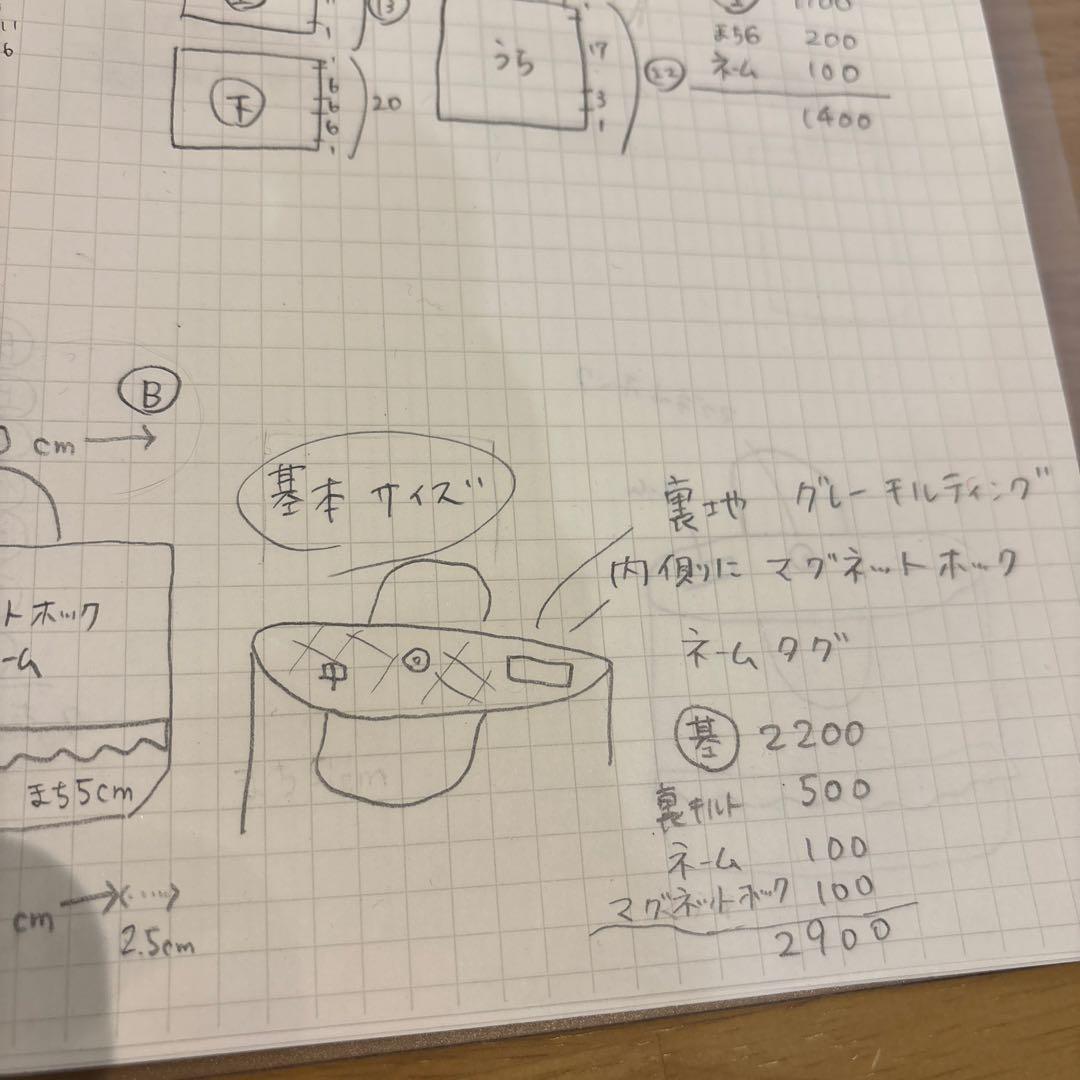 11
6
13
1
下
6
6
6
1
20
うら
17
3
1
22
まち6 200
ネーム 100
1400
B
cm
基本サイズ
トホック
ーム
まち5cm
cm
2.5cm
裏地 グレーキルティング
内側に マグネットホック
ネームタグ
基 2200
裏キルト 500
ネーム 100
マグネットホック 100
2900